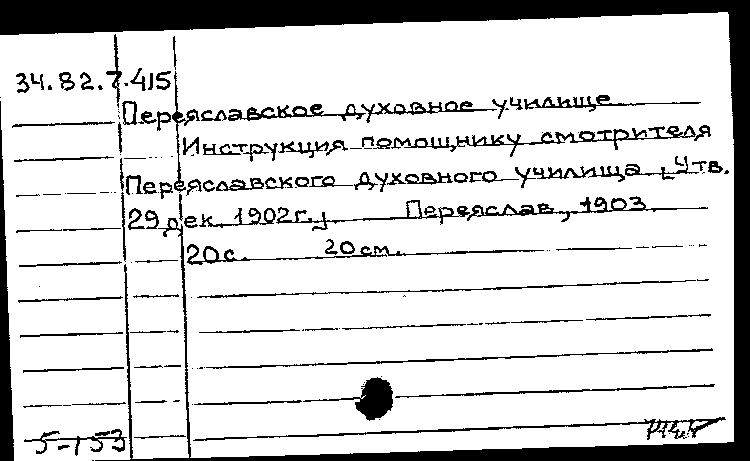 34.82.7.415
Переяславское духовное училище.
Инструкция помощнику смотрителя
Переяславского духовного училища, [Утв.
29 дек. 1902г.] Переяслав, 1903.
20с. 20см.
5-153